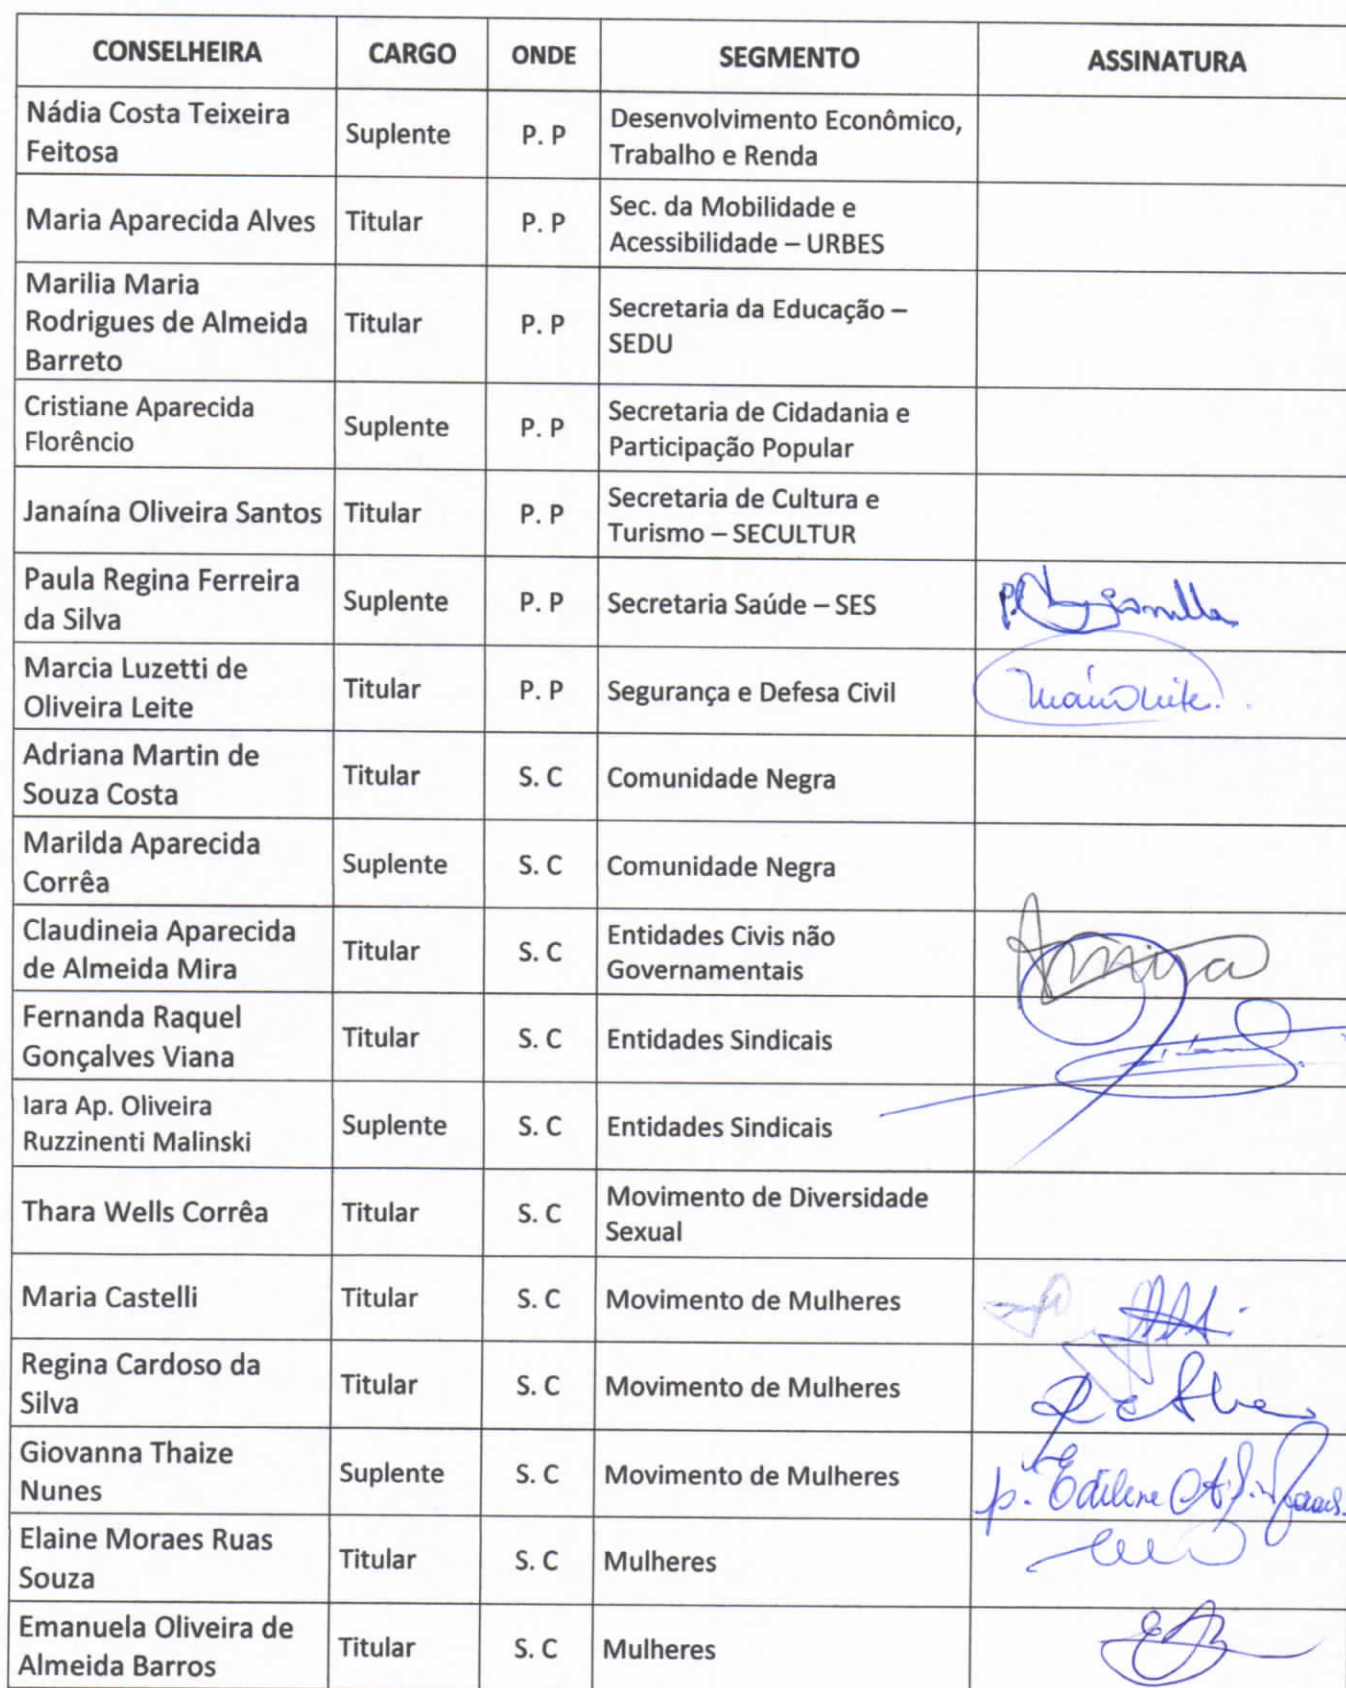 CONSELHEIRA CARGO ONDE SEGMENTO ASSINATURA
Nádia Costa Teixeira
Feitosa
Suplente
P. P
Desenvolvimento Econômico,
Trabalho e Renda
Maria Aparecida Alves
Titular
P. P
Sec. da Mobilidade e
Acessibilidade – URBES
Marilia Maria
Rodrigues de Almeida
Barreto
Titular
P. P
Secretaria da Educação –
SEDU
Cristiane Aparecida
Florêncio
Suplente
P. P
Secretaria de Cidadania e
Participação Popular
Janaína Oliveira Santos
Titular
P. P
Secretaria de Cultura e
Turismo – SECULTUR
Paula Regina Ferreira
da Silva
Suplente
P. P
Secretaria Saúde – SES
Marcia Luzetti de
Oliveira Leite
Titular
P. P
Segurança e Defesa Civil
Adriana Martin de
Souza Costa
Titular
S. C
Comunidade Negra
Marilda Aparecida
Corrêa
Suplente
S. C
Comunidade Negra
Claudineia Aparecida
de Almeida Mira
Titular
S. C
Entidades Civis não
Governamentais
Fernanda Raquel
Gonçalves Viana
Titular
S. C
Entidades Sindicais
Iara Ap. Oliveira
Ruzzinenti Malinski
Suplente
S. C
Entidades Sindicais
Thara Wells Corrêa
Titular
S. C
Movimento de Diversidade
Sexual
Maria Castelli
Titular
S. C
Movimento de Mulheres
Regina Cardoso da
Silva
Titular
S. C
Movimento de Mulheres
Giovanna Thaize
Nunes
Suplente
S. C
Movimento de Mulheres
p. Edilene
Elaine Moraes Ruas
Souza
Titular
S. C
Mulheres
Emanuela Oliveira de
Almeida Barros
Titular
S. C
Mulheres